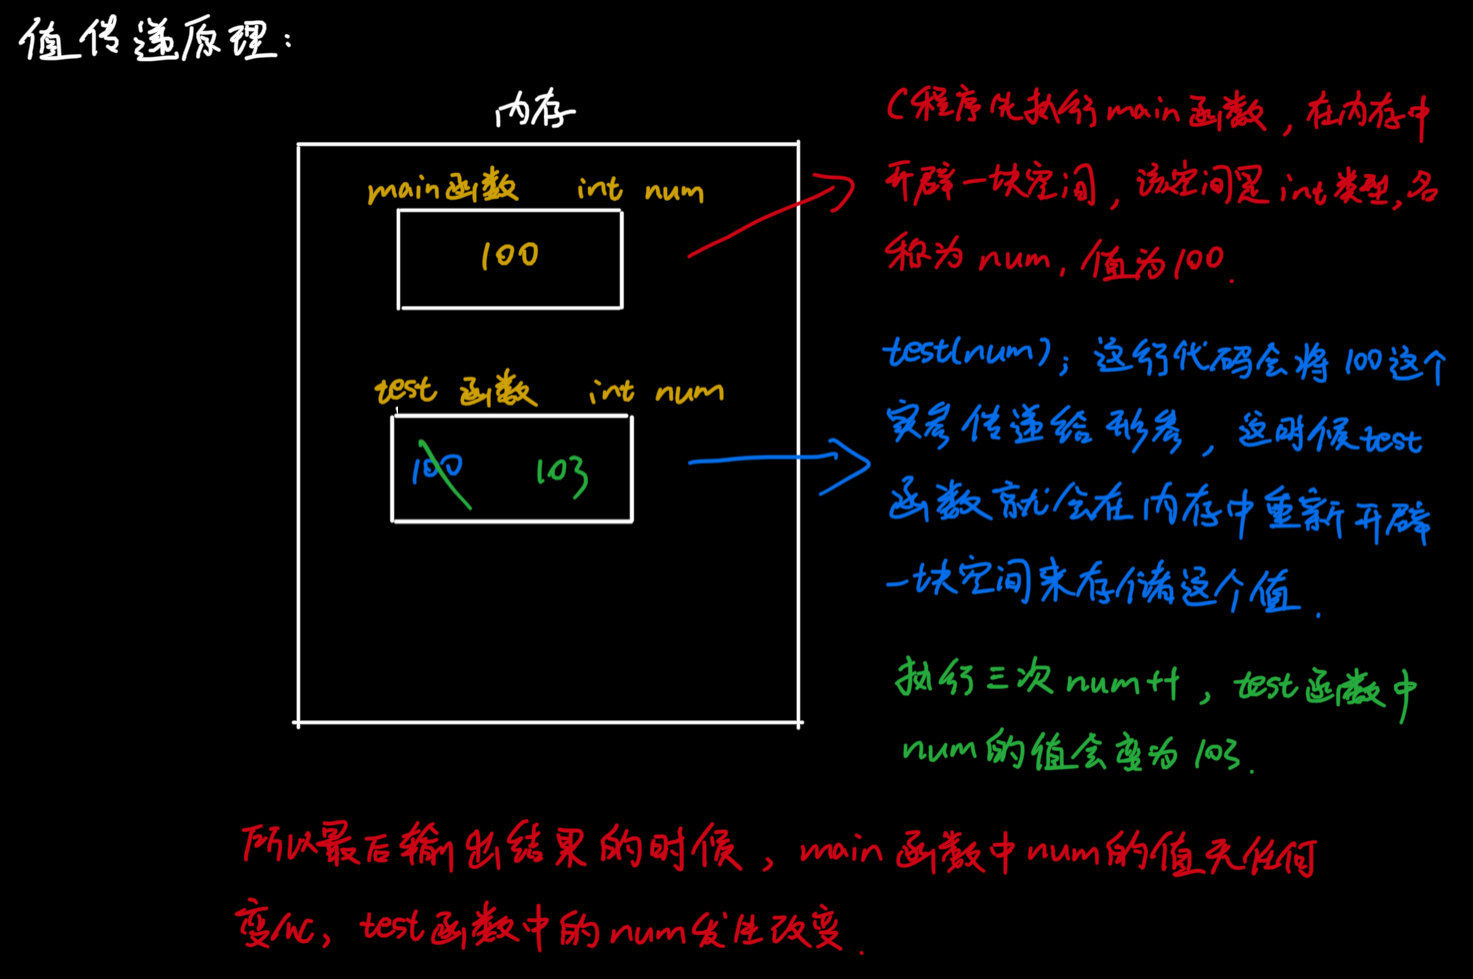 值传递原理:
内存
main函数 int num
100
test 函数 int num
100 103
C程序先执行main函数，在内存中
开辟一块空间，该空间是int类型,名
称为num，值为100.
test(num)；这行代码会将100这个
实参传递给形参，这时候test
函数就会在内存中重新开辟
一块空间来存储这个值.
执行三次num++，test函数中
num的值会变为103.
所以最后输出结果的时候，main函数中num的值无任何
变化，test函数中的num发生改变.